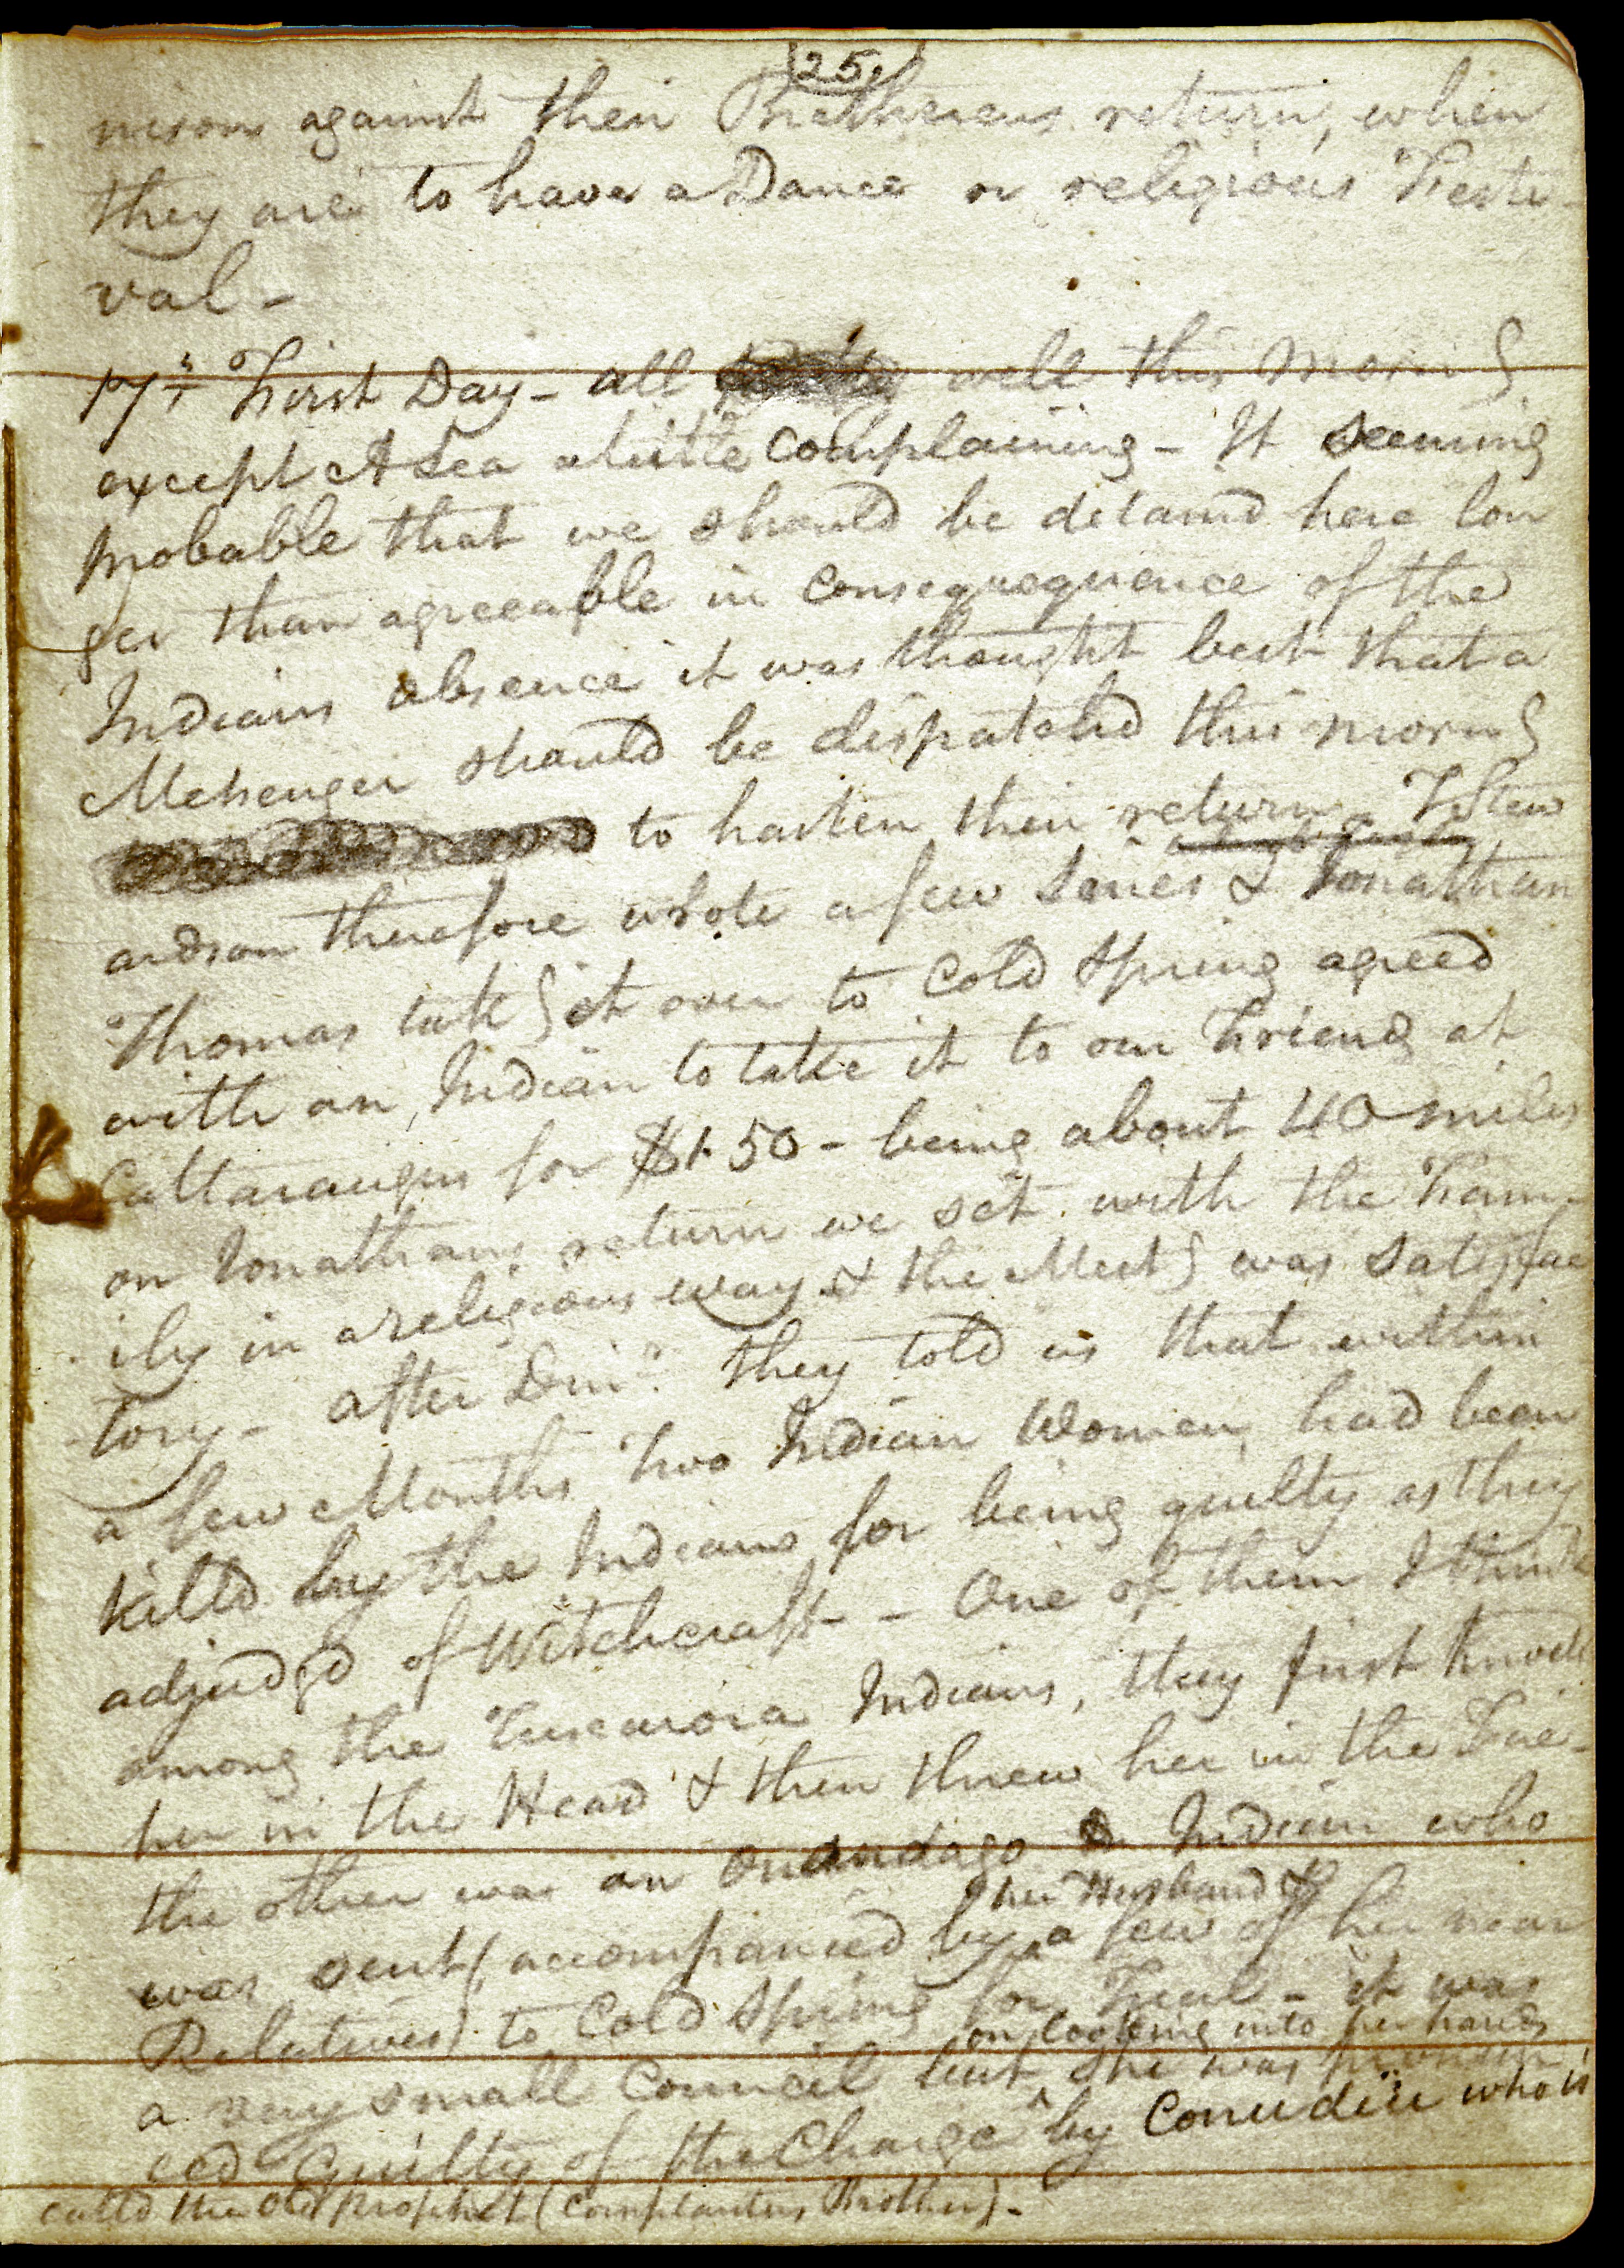 25
nison against their Bretherens return, when
they are to have a Dance or religious Festi-
val -
17th First Day - all well this Morng
except A Lea a little complaining - It seeming
probable that we should be detaind here lon
ger than agreeable in consequequence of the
Indians absence it was thought best that a
Messenger should be dispatched this morng
to hasten their return T Stew
ardson therefore wrote a few Lines & Jonathan
Thomas takg it over to Cold Spring agreed
with an Indian to take it to our Friends at
Cattaraugus for $1.50 - being about 40 miles
on Jonathans return we set with the Fam-
ily in a religious way & the Meetg was satisfac
tory - after Dinr. they told us that within
a few Months two Indian Women, had been
killd by the Indians for being guilty as they
adjudgd of Witchcraft - One of them I think
among the Tuscarora Indians, they first knock
her in the Head & then threw her in the Fire -
the other was an Onandago Indian who
her Husband &
was sent (accompanied by ^ a few of her near
Relatives) to Cold Spring for Trial - it was
on looking into her hands
a very small Council but she was pronoun
ced Guilty of the Charge ^ by Conudiu who is
called the Old prophet (Cornplanters Brother). -